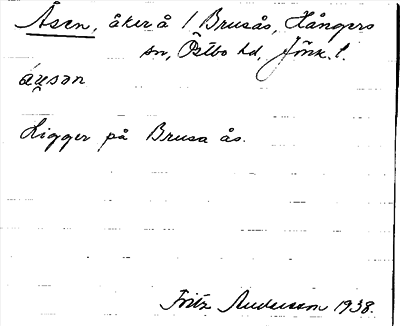 Åsen, åker å 1 Brusås, Hångers
sn, Östbo hd, Jönk. l.
Ligger på Brusa ås.
Fritz Andersson 1938.